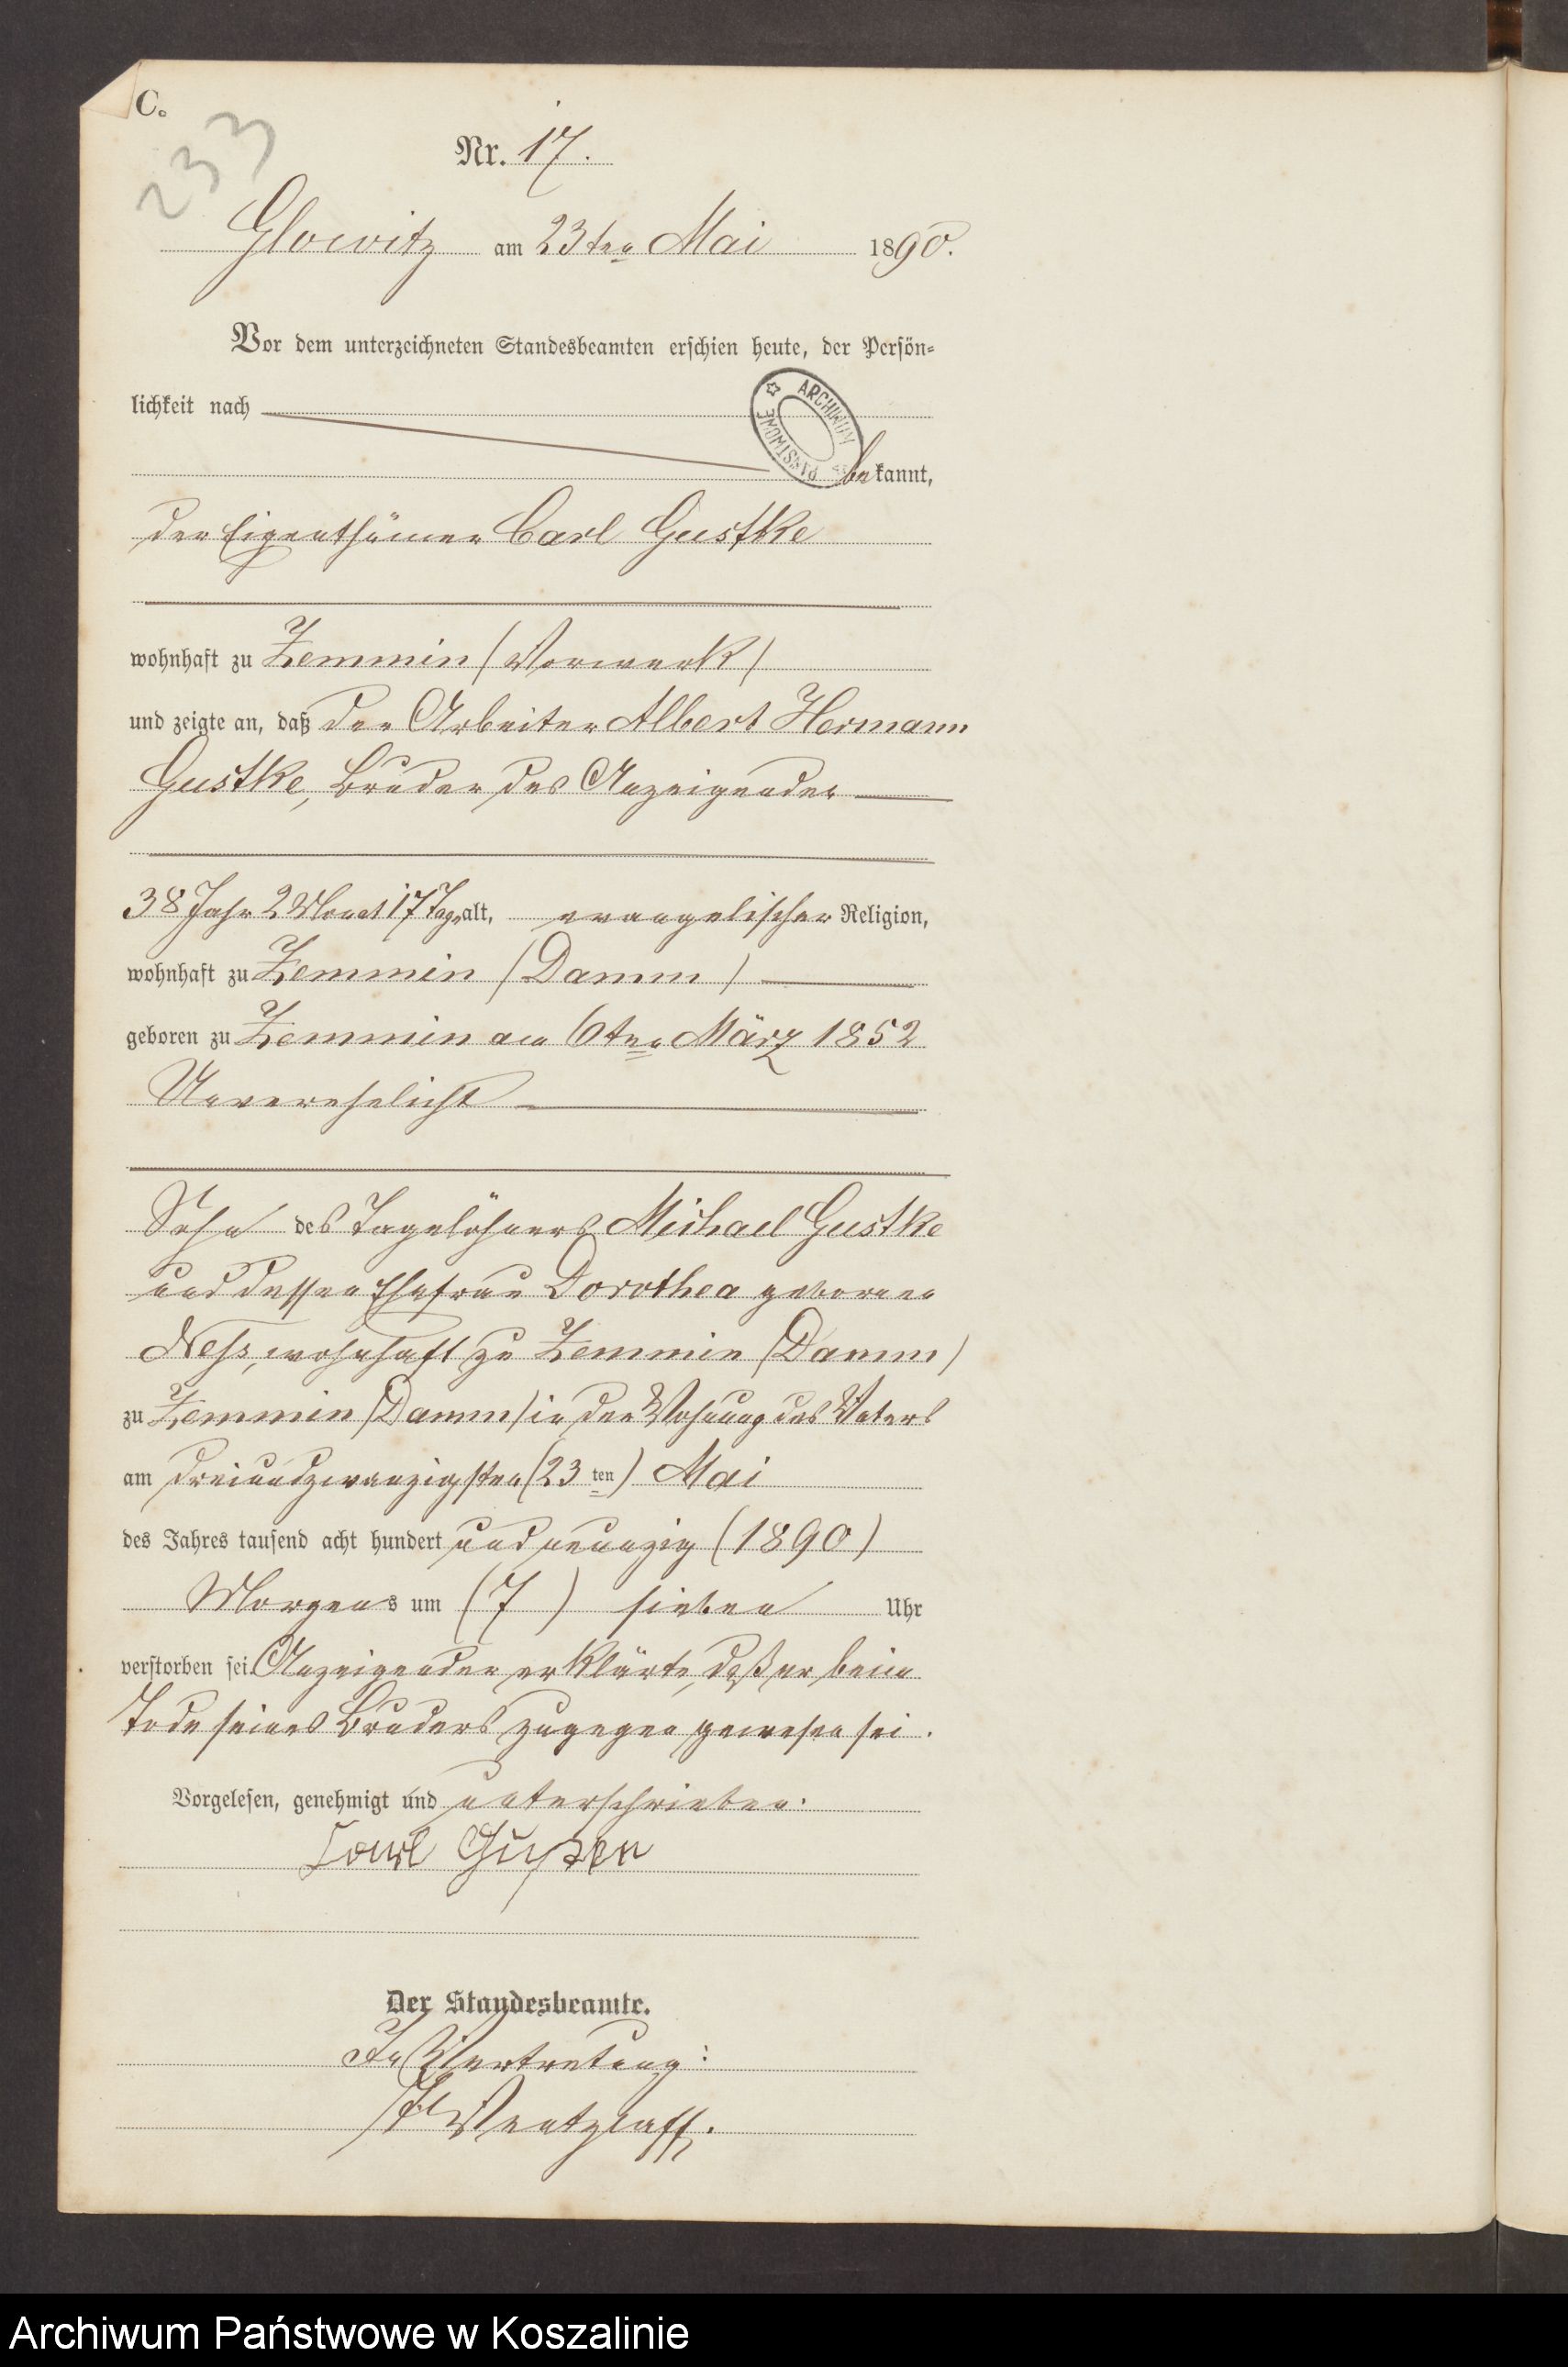 C.
233
Nr. 17.
Glowitz am 23ten Mai 1890.
Vor dem unterzeichneten Standesbeamten erschien heute, der Persön-
lichkeit nach
ARCHIWUM PAŃSTWOWE
bekannt,
der Eigenthümer Carl Gustke
wohnhaft zu Zemmin (Vorwerk)
und zeigte an, daß der Arbeiter Albert Hermann
Gustke, Bruder des Anzeigenden
38 Jahr 2 Monat 17 Tage alt, evangelischer Religion,
wohnhaft zu Zemmin (Damm)
geboren zu Zemmin am 6ten März 1852
Unverehelicht
Sohn des Tagelöhners Michael Gustke
und dessen Ehefrau Dorothea geborenen
Ness, wohnhaft zu Zemmin (Damm)
zu Zemmin (Damm) in der Wohnung des Vaters
am dreiundzwanzigsten (23 ten) Mai
des Jahres tausend acht hundert und neunzig (1890)
Morgens um (7) sieben Uhr
verstorben sei. Anzeigender erklärte, daß er beim
Tode seines Bruders zugegen gewesen sei.
Vorgelesen, genehmigt und unterschrieben.
Carl
Der Standesbeamte.
In Vertretung:
Wentzlaff.
Archiwum Państwowe w Koszalinie